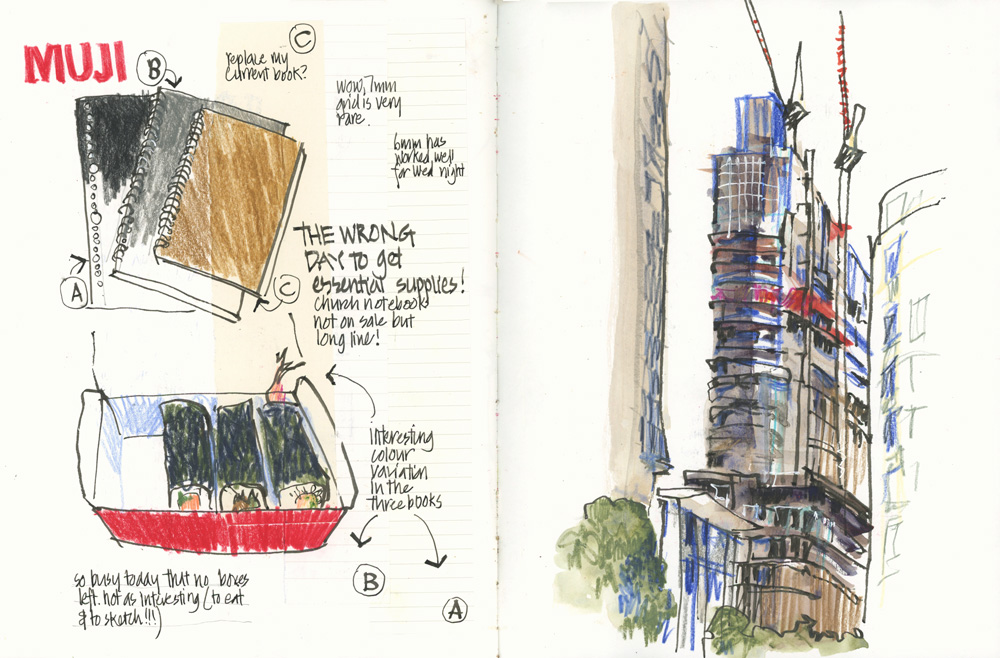 MUJI
B
C
replace my
current book?
wow, 7mm
grid is very
rare.
6mm has
worked well
for Wed night
A
C
THE WRONG
DAY to get
essential supplies!
church notebook
not on sale but
long line!
interesting
colour
variation
in the
three books
B
A
so busy today that no boxes
left. not as interesting (to eat
& to sketch!!!)